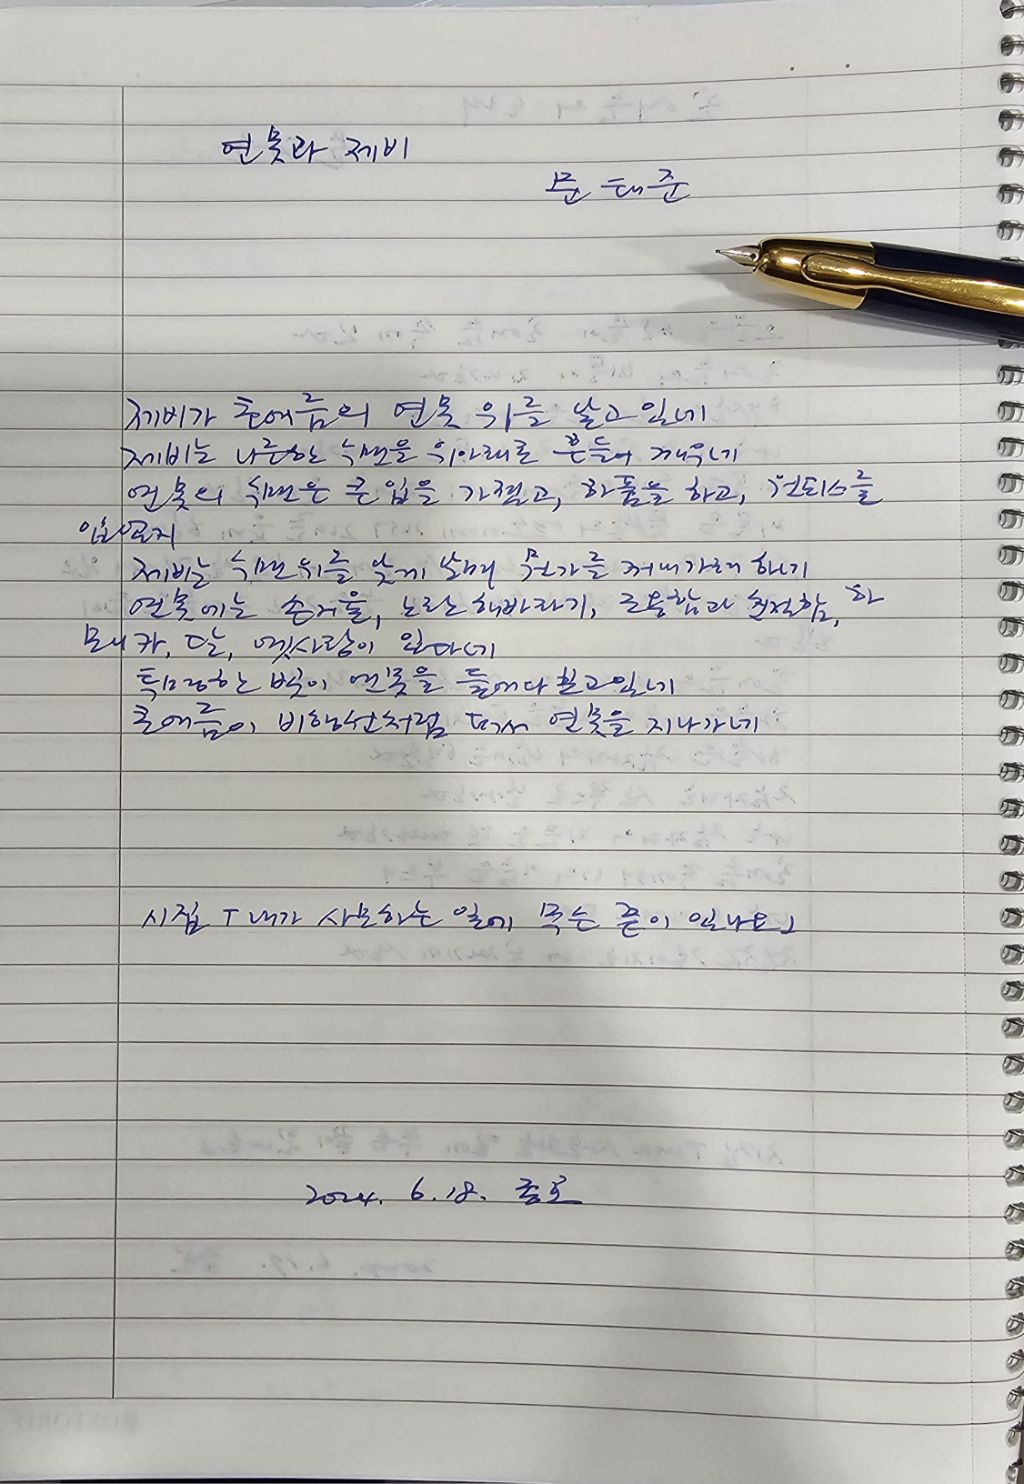 연못과 제비
문태준
제비가 초여름의 연못 위를 날고 있네
제비는 나른한 수면을 위아래로 흔들어 깨우네
연못의 수면은 큰 입을 가졌고, 하품을 하고, 원피스를
입었지
제비는 수면 위를 낮게 날며 뭔가를 꺼내가려 하기
연못에는 손거울, 노란 해바라기, 조용함과 쓸쓸함, 하
모니카, 달, 옛사랑이 있다네
특명한 빛이 연못을 들여다보고 있네
초여름이 비행선처럼 떠서 연못을 지나가네
시집 「내가 사모하는 일에 무슨 끝이 있나요」
2024. 6. 18. 종로